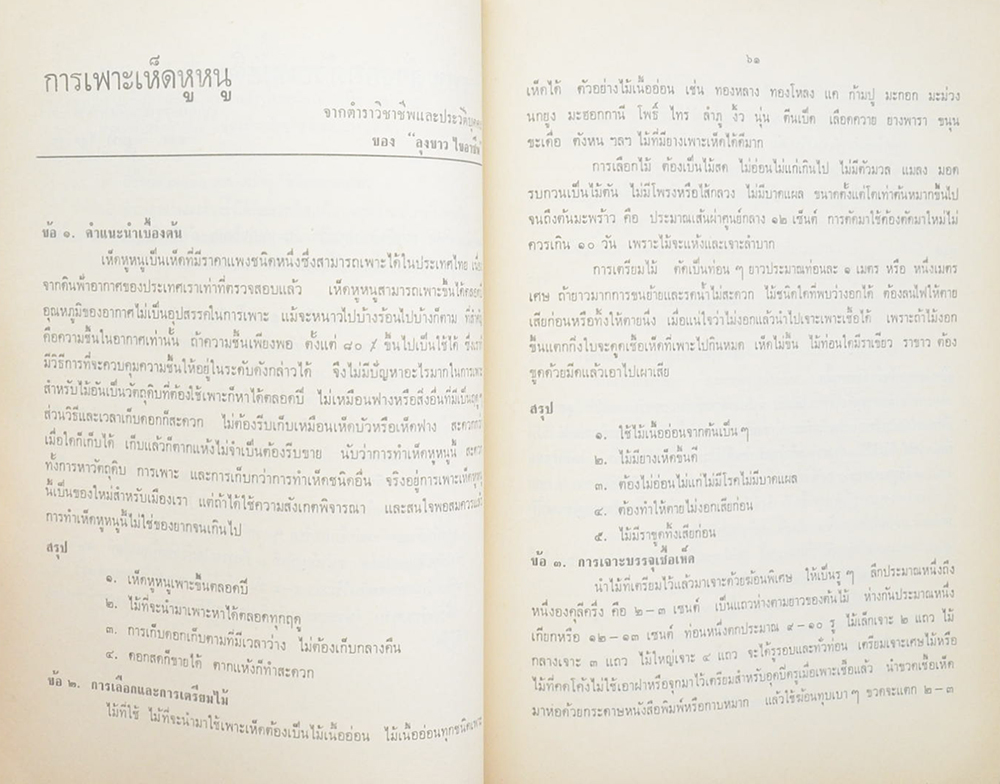 การเพาะเห็ดหูหนู
จากตำราวิชาชีพและประวัติบุคคล
ของ "ลุงขาว ไขอาชีพ
ข้อ ๑. คำแนะนำเบื้องต้น
เห็ดหูหนูเป็นเห็ดที่มีราคาแพงชนิดหนึ่งซึ่งสามารถเพาะได้ในประเทศไทย เนื่อง
จากดินฟ้าอากาศของประเทศเราเท่าที่ตรวจสอบแล้ว เห็ดหูหนูสามารถเพาะขึ้นได้ตลอดปี
อุณหภูมิของอากาศไม่เป็นอุปสรรคในการเพาะ แม้จะหนาวไปบ้างร้อนไปบ้างก็ตาม ที่สำคัญ
คือความชื้นในอากาศเท่านั้น ถ้าความชื้นเพียงพอ ตั้งแต่ ๘๐ % ขึ้นไปเป็นใช้ได้ ซึ่งเรา
มีวิธีการที่จะควบคุมความชื้นให้อยู่ในระดับดังกล่าวได้ จึงไม่มีปัญหาอะไรมากในการเพาะ
สำหรับไม้อันเป็นวัตถุดิบที่ต้องใช้เพาะก็หาได้ตลอดปี ไม่เหมือนฟางหรือสิ่งอื่นที่มีเป็นฤดูๆ
ส่วนวิธีและเวลาเก็บดอกก็สะดวก ไม่ต้องรีบเก็บเหมือนเห็ดบัวหรือเห็ดฟาง สะดวกกว่า
เมื่อใดก็เก็บได้ เก็บแล้วก็ตากแห้งไม่จำเป็นต้องรีบขาย นับว่าการทำเห็ดหูหนูนี้ สะดวก
ทั้งการหาวัตถุดิบ การเพาะ และการเก็บกว่าการทำเห็ดชนิดอื่น จริงอยู่การเพาะเห็ดหูหนู
นี้เป็นของใหม่สำหรับเมืองเรา แต่ถ้าได้ใช้ความสังเกตพิจารณา และสนใจพอสมควรแล้ว
การทำเห็ดหูหนูนี้ไม่ใช่ของยากจนเกินไป
สรุป
๑. เห็ดหูหนูเพาะขึ้นตลอดปี
๒. ไม้ที่จะนำมาเพาะหาได้ตลอดทุกฤดู
๓. การเก็บดอกเก็บตามที่มีเวลาว่าง ไม่ต้องเก็บกลางคืน
๔. ดอกสดก็ขายได้ ตากแห้งก็ทำสะดวก
ข้อ ๒. การเลือกและการเตรียมไม้
ไม้ที่ใช้ ไม้ที่จะนำมาใช้เพาะเห็ดต้องเป็นไม้เนื้ออ่อน ไม้เนื้ออ่อนทุกชนิดเพาะ
๖๑
เห็ดได้ ตัวอย่างไม้เนื้ออ่อน เช่น ทองหลาง ทองโหลง แค ก้ามปู มะกอก มะม่วง
นกยูง มะฮอกกานี โพธิ์ ไทร ลำภู งิ้ว นุ่น ตีนเป็ด เลือดควาย ยางพารา ขนุน
ชะเดื่อ ตังหน ฯลฯ ไม้ที่มียางเพาะเห็ดได้ดีมาก
การเลือกไม้ ต้องเป็นไม้สด ไม่อ่อนไม่แก่เกินไป ไม่มีตัวมวล แมลง มอด
รบกวนเป็นไม้ตัน ไม่มีโพรงหรือไส้กลวง ไม่มีบาดแผล ขนาดตั้งแต่โตเท่าต้นหมากขึ้นไป
จนถึงต้นมะพร้าว คือ ประมาณเส้นผ่าศูนย์กลาง ๑๒ เซ็นต์ การตัดมาใช้ต้องตัดมาใหม่ไม่
ควรเกิน ๑๐ วัน เพราะไม้จะแห้งและเจาะลำบาก
การเตรียมไม้ ตัดเป็นท่อน ๆ ยาวประมาณท่อนละ ๑ เมตร หรือ หนึ่งเมตร
เศษ ถ้ายาวมากการขนย้ายและรดน้ำไม่สะดวก ไม้ชนิดใดที่พบว่างอกได้ ต้องลนไฟให้ตาย
เสียก่อนหรือทิ้งให้ตายนึ่ง เมื่อแน่ใจว่าไม่งอกแล้วนำไปเจาะเพาะเชื้อได้ เพราะถ้าไม้งอก
ขึ้นแตกกิ่งใบจะดูดเชื้อเห็ดที่เพาะไปกินหมด เห็ดไม่ขึ้น ไม้ท่อนใดมีราเขียว ราขาว ต้อง
ขูดด้วยมีดแล้วเอาไปเผาเสีย
สรุป
๑. ใช้ไม้เนื้ออ่อนจากต้นเป็น ๆ
๒. ไม้มียางเห็ดขึ้นดี
๓. ต้องไม่อ่อนไม่แก่ไม่มีโรคไม่มีบาดแผล
๔. ต้องทำให้ตายไม่งอกเสียก่อน
๕. ไม้มีราขูดทิ้งเสียก่อน
ข้อ ๓. การเจาะบรรจุเชื้อเห็ด
นำไม้ที่เตรียมไว้แล้วมาเจาะด้วยฆ้อนพิเศษ ให้เป็นรู ๆ ลึกประมาณหนึ่งถึง
หนึ่งองคุลีครึ่ง คือ ๒-๓ เซนต์ เป็นแถวห่างตามยาวของต้นไม้ ห่างกันประมาณหนึ่ง
เกียกหรือ ๑๒-๑๓ เซนต์ ท่อนหนึ่งตกประมาณ ๙-๑๐ รู ไม้เล็กเจาะ ๒ แถว ไม้
กลางเจาะ ๓ แถว ไม้ใหญ่เจาะ ๔ แถว จะได้รูรอบและทั่วท่อน เตรียมเจาะเศษไม้หรือ
ไม้ที่คดโค้งไม่ใช้เอาฝาหรือจุกมาไว้เตรียมสำหรับอุดปิดครูเมื่อเพาะเชื้อแล้ว นำขวดเชื้อเห็ด
มาห่อด้วยกระดาษหนังสือพิมพ์หรือกาบหมาก แล้วใช้ฆ้อนทุบเบา ๆ ขวดจะแตก ๒-๓